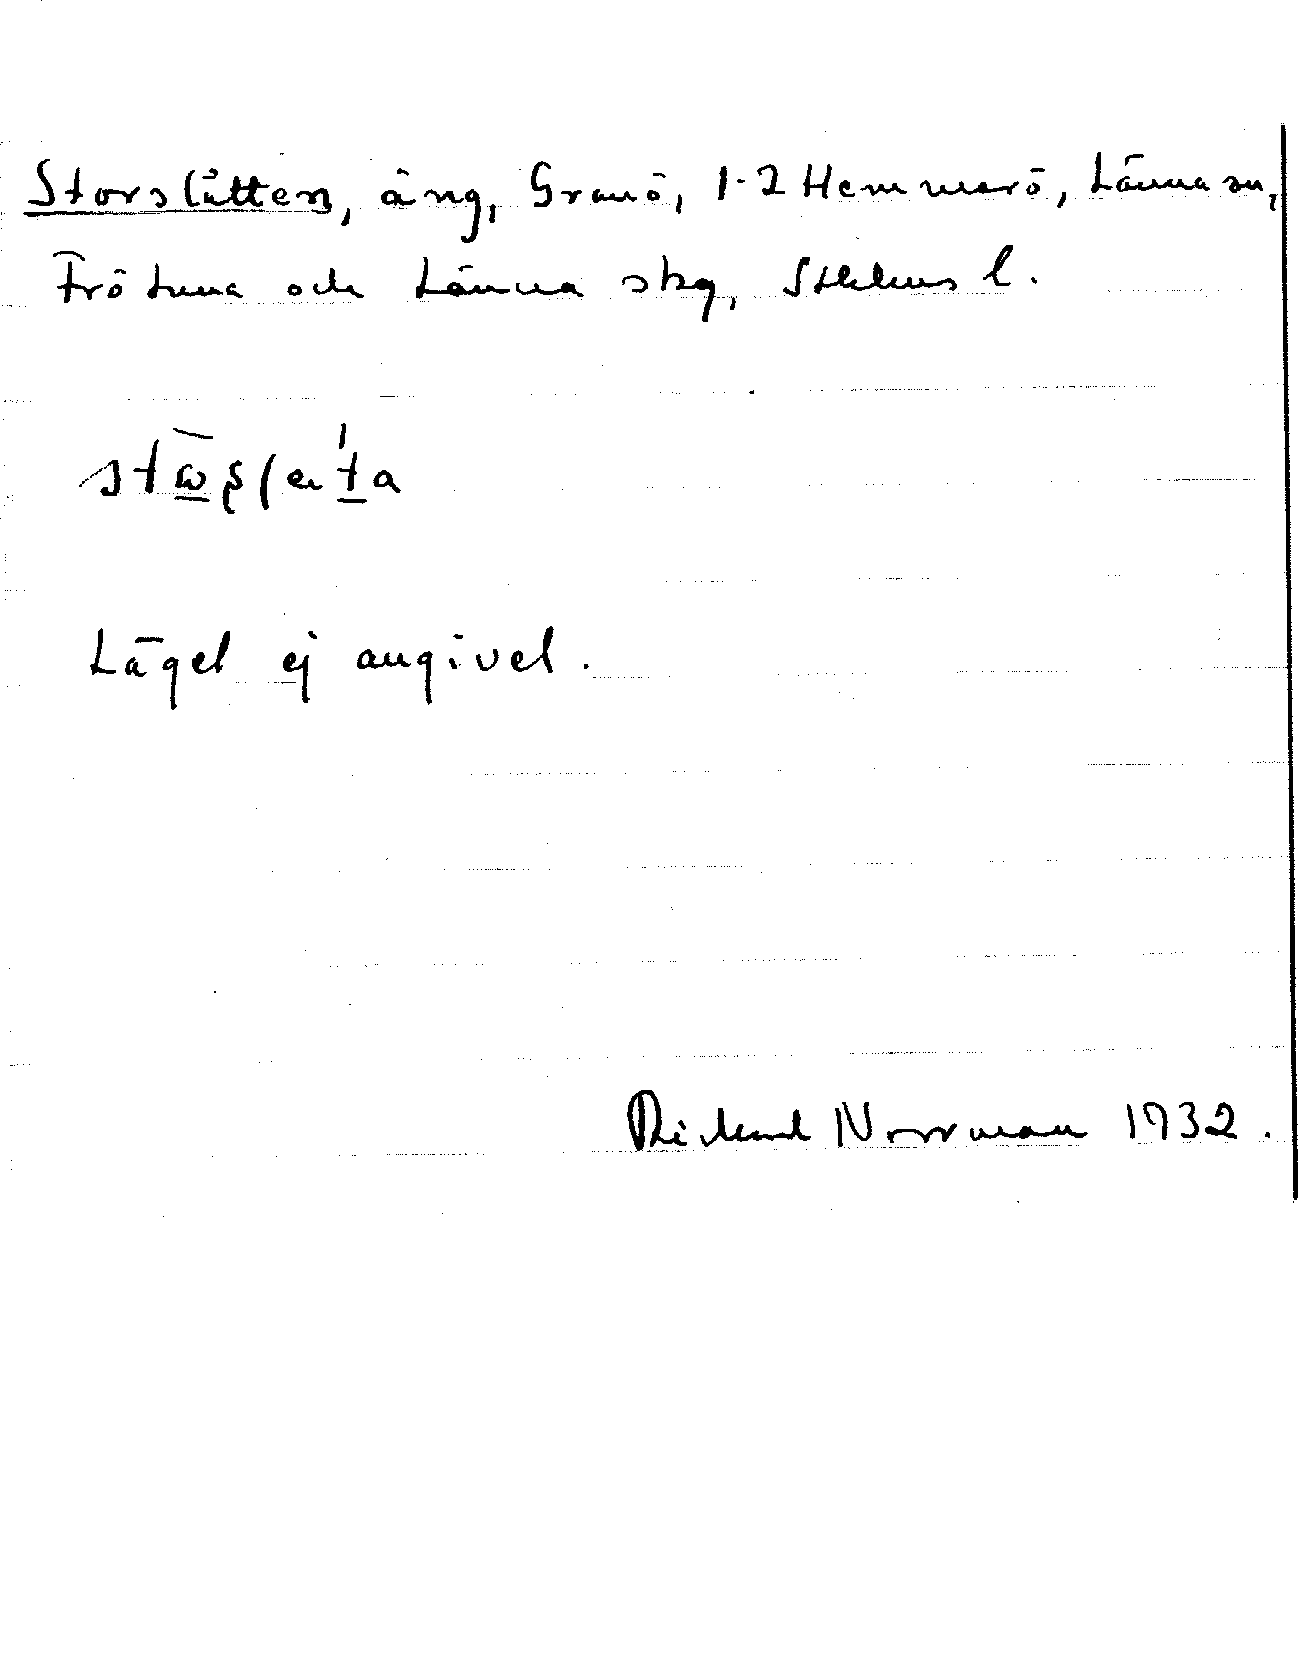 Storslåtten, äng, Granö, 1-2 Hemmarö, Länna sn,
Frötuna och Länna skg, Sthlms l.
Läget ej angivet.
Rickard Norrman 1932.